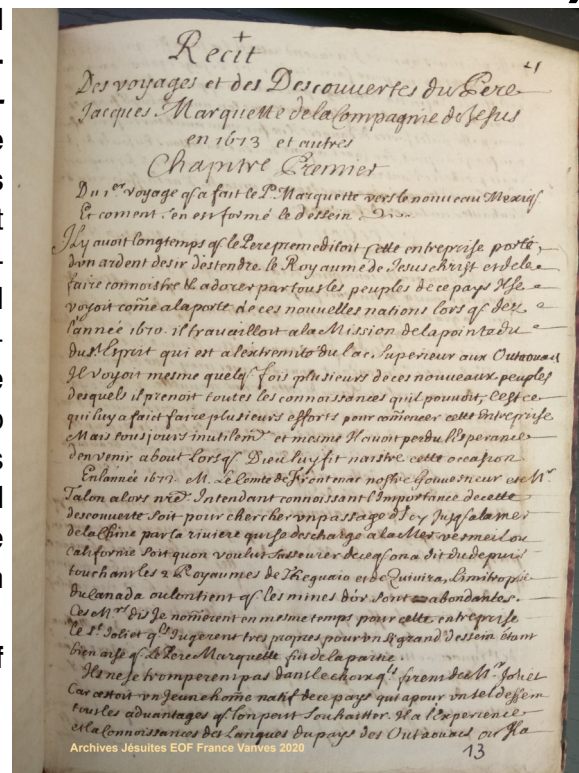 Recit
41
Des voyages et des Descouuertes du Pere
Jacques Marquette de la Compagnie de Jesus
en 1673 et autres
Chapitre Premier
Du 1er voyage qʃ a fait le P. Marquette vers le nouueau Mexiqʃ
Et coment s'en est formé le dessein.
Il y auoit longtemps qʃ le Pere premeditoit cette entreprise porté,
d'vn ardent desir d'estendre le Royaume de Jesuschrist et de le
faire connoistre & adorer par tous les peuples de ce pays Il se
voyoit come a la porte de ces nouuelles nations lors qʃ dez
l'année 1670. il trauailloit a la Mission de la pointe du
du st Esprit qui est a l'extremité du lac Superieur aux Outaouacs
Il voyoit mesme quelqʃ fois plusieurs de ces nouueaux peuples
desquels il prenoit toutes les connoissances qu'il pouuoit, C'est ce
qui luy a faict faire plusieurs efforts pour comencer cette Entreprise
Mais tousjours inutilemt et mesme Il auoit perdu l'esperance
d'en venir about Lorsqʃ Dieu luy fit naistre cette occasion.
En l'année 167 M. Le Comte de Frontenac nostre Gouuerneur et Mr.
Talon alors Intendant connoissant l'Importance de cette
descouuerte Soit pour chercher vn passage d'Icy Jusqʃ a la mer
de la Chine par la riuiere qui se descharge a la Mer vermeil ou
Californie Soit quon voulut s'asseurer de ce qʃ on a dit du depuis
touchant les 2 Royaumes de Theguaio et de Quiuira, Limitrophes
du Canada ou lon tient qʃ les mines d'or sont abondantes.
Ces Mrs dis Je nomerent en mesme temps pour cette entreprise
Le Sr. Joliet qls Jugerent tres propres pour vn Si grand dessein étant
bien aise qʃ Le Pere Marquette fut de la partie.
Ils ne se tromperent pas dans le choix qls firent de Mr. Joliet
Car cestoit vn Jeune home natif de ce pays qui a pour vn tel dessein
tous les aduantages qʃ lon peut Souhaitter. Il a l'Experience
et la Connoissances des Langues du pays des Outaouacs ou Il a
Archives Jésuites EOF France Vanves 2020
13